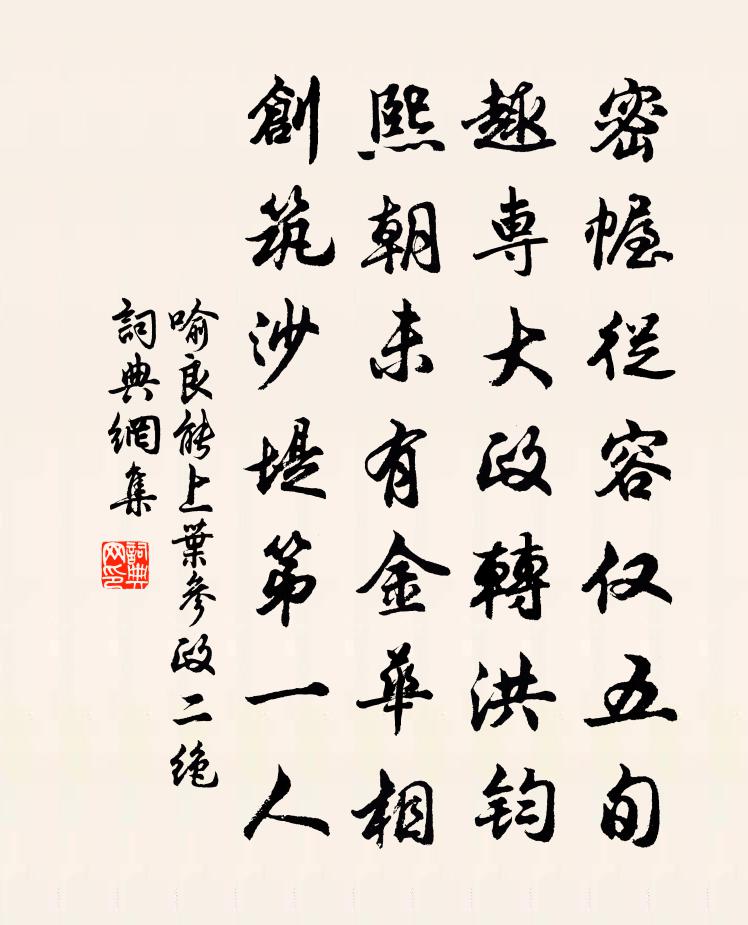 密幄從容仅五旬
趣専大政轉洪鈞
熙朝未有金華相
創筑沙堤第一人
喻良能上葉參政二絶
詞典網集
詞典网印